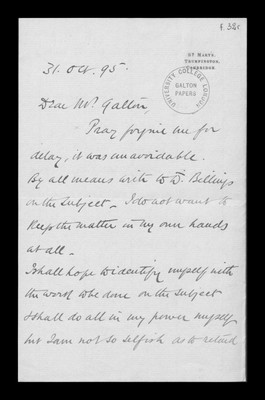 F. 38r
ST MARYS,
TRUMPINGTON,
CAMBRIDGE.
UNIVERSITY COLLEGE LONDON
GALTON
PAPERS
31. Oct. 95.
Dear Mr. Galton,
Pray forgive me for
delay, it was unavoidable.
By all means write to Dr. Billings
on the subject - I do not want to
keep the matter in my own hands
at all -
I shall hope to identify myself with
the work to be done on the subject
& shall do all in my power myself
but I am not so selfish as to retard